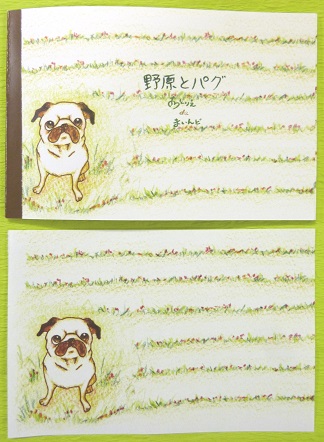 野原とパグ
あとりえ
de
まいんど